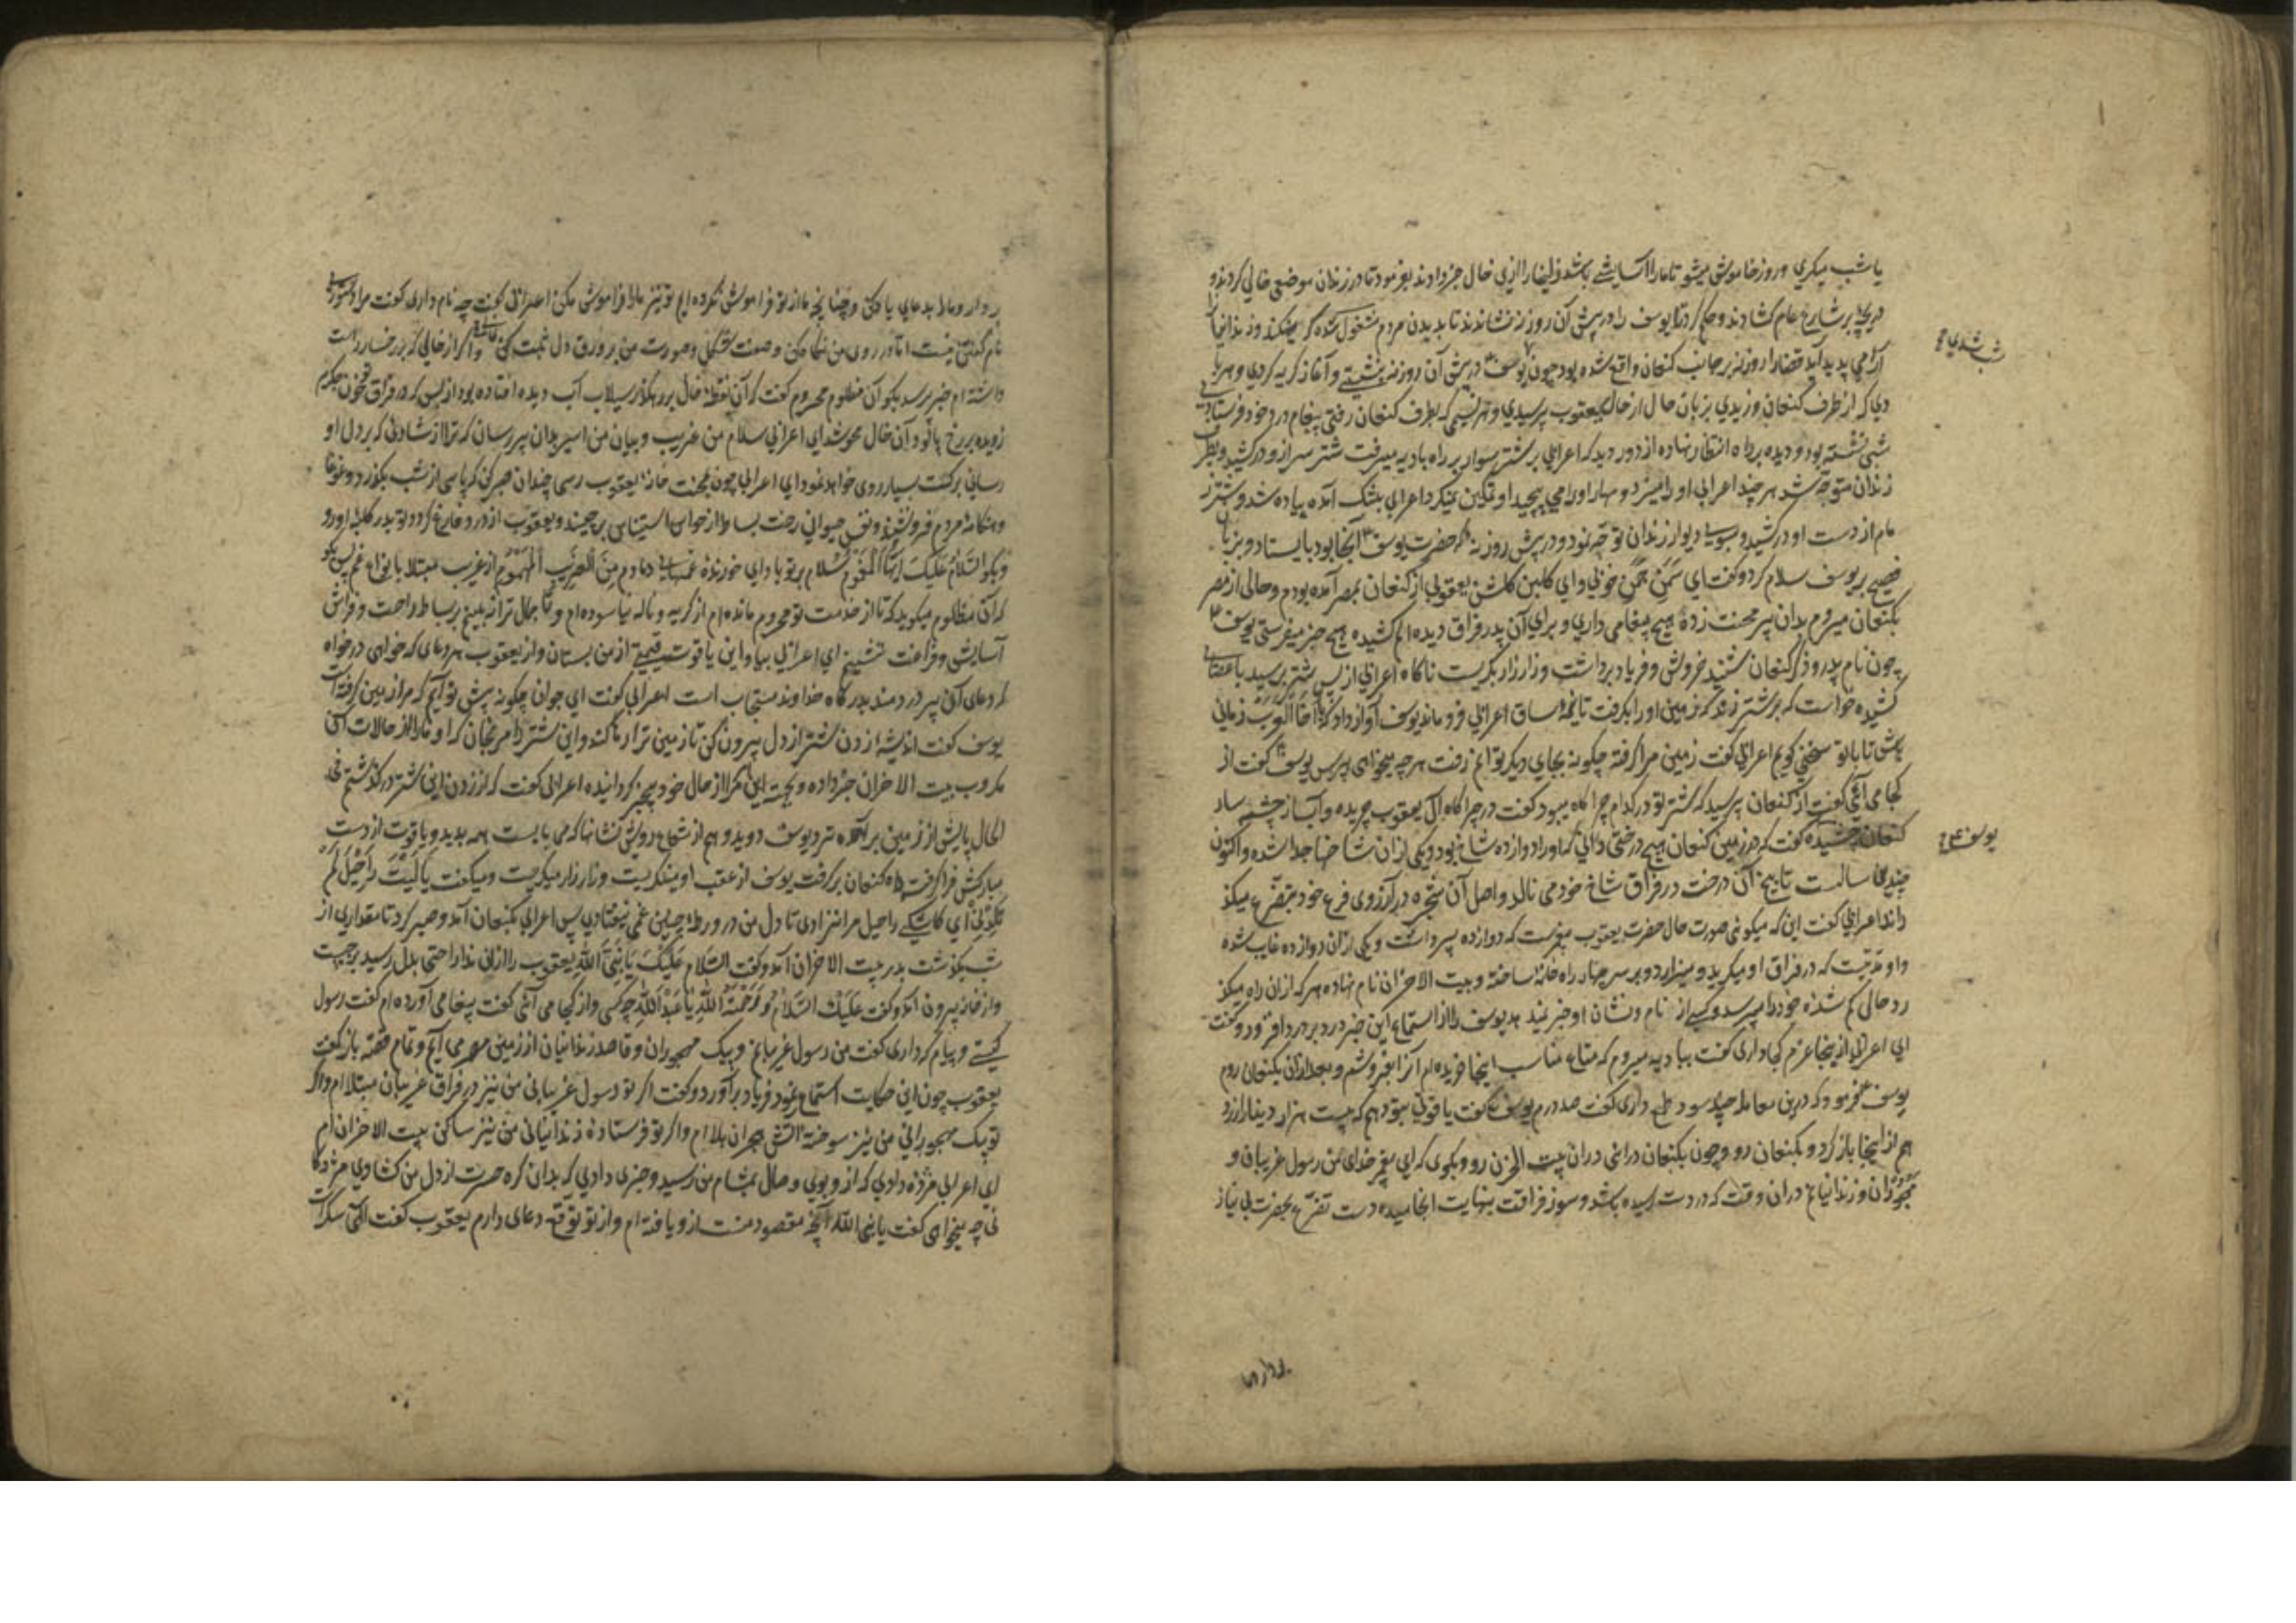 یا شب میگری و روز خاموش میشو تا ما را آسایشی باشد زلیخا را ازین حال خبر دادند بفرمود تا در زندان موضعی خالی کردند و
دریچه بر شارع عام گشادند و حکم کرد تا یوسف را در پیش آن روزن نشاندند تا بدیدن مردم مشغول شده گریه نکند و زندانیانرا
آرامی پدید آید قضا را روزنه بر جانب کنعان واقع شده بود چون یوسف در پیش آن روزنه بنشستی و آغاز گریه کردی و هر با
دی که از طرف کنعان وزیدی بزبان حال از حال یعقوب پرسیدی و هر نسیمی که بطرف کنعان رفتی پیغام درد خود فرستادی
شبی نشسته بود و دیده بر راه انتظار نهاده از دور دید که اعرابی بر شتر سوار بر راه بادیه میرفت شتر سر ازو درکشید و بطرف
زندان متوجه شد هر چند اعرابی او را میزد و مهار او را می پیچید او تمکین نمیکرد اعرابی بتنگ آمده پیاده شد و شتر ز
مام از دست او درکشید و بسوی دیوار زندان توجه نمود و در پیش روزنه که حضرت یوسف آنجا بود بایستاد و بزبان
فصیح بر یوسف سلام کرد و گفت ای سمن چمن خوبی و ای گلبن گلشن یعقوبی از کنعان بمصر آمده بودم و حالی از مصر
بکنعان میروم بدان پیر محنت زده هیچ پیغامی داری و برای آن پدر فراق دیده الم کشیده هیچ خبر میفرستی یوسف
چون نام پدر و ذکر کنعان شنید خروش و فریاد برداشت و زار زار بگریست ناگاه اعرابی از پس شتر برسید با عصای
کشیده خواست که بر شتر زند که زمین او را بگرفت تا نیمه ساق اعرابی فرو ماند یوسف آواز داد که یا اخا العرب زمانی
باش تا با تو سخنی گویم اعرابی گفت زمین مرا گرفته چگونه بجای دیگر توانم رفت هر چه میخواهی بپرس یوسف گفت از
کجا می آئی گفت از کنعان پرسید که شتر تو در کدام چراگاه میبود گفت در چراگاه آل یعقوب چریده و آب از چشمه سار
کنعان چشیده گفت که در زمین کنعان هیچ درختی دانی که او را دوازده شاخ بود و یکی از ان شاخها جدا شده و اکنون
چندین سالست تا بیخ آن درخت در فراق شاخ خود می نالد و اصل آن شجره در آرزوی فرع خود تضرع میکند
داند اعرابی گفت این که میگوئی صورت حال حضرت یعقوب پیغمبرست که دوازده پسر داشت و یکی از آن دوازده غایب شده
و او مدتیست که در فراق او میگرید و میزارد و بر سر چهار راه خانه ساخته و بیت الاحزان نام نهاده هر که از ان راه میگذ
رد حالی گم شده خود را میپرسد و کسی از نام و نشان او خبر نمیدهد یوسف را از استماع این خبر درد بر درد افزود و گفت
ای اعرابی از اینجا عزم کجا داری گفت ببادیه میروم که متاع مناسب اینجا خریده ام آنرا بفروشم و بعد از ان بکنعان روم
یوسف فرمود که درین معامله چه سود طمع داری گفت صد درم یوسف گفت یاقوتی بتو دهم که بیست هزار دینار ارزد
هم از اینجا باز گرد و بکنعان رو و چون بکنعان درائی در ان بیت الحزن رو و بگوی که ای پیغمبر خدای من رسول غریبان و
مهجوران و زندانیانم در ان وقت که دردت رسیده باشد و سوز فراقت بنهایت انجامیده دست تضرع بحضرت بی نیاز
شب شدی
یوسف
بردار و ما
بردار و ما را بدعای یاد کن و چنانچه ما از تو فراموش نکرده ایم تو نیز ما را فراموش مکن اعرابی گفت چه نام داری گفت مرا دستوری
نام گفتن نیست اما در روی من نگاه کن و صفت شکل و صورت من بر ورق دل ثبت کن و اگر از خالی که بر رخسار راست
داشته ام خبر پرسد بگو آن مظلوم محروم گفت که آن نقطه خال بر رهگذر سیلاب آب دیده افتاده بود از بس که در فراق تو خون جگرم
ز دیده بر رخ پالود آن خال محو شد ای اعرابی سلام من غریب و بیان من اسیر بدان پیر رسان که ترا از شادئی که بر دل او
رسانی برکت بسیار روی خواهد نمود ای اعرابی چون بمحنت خانه یعقوب رسی چندان صبر کن که پاسی از شب بگذرد و غوغا
و هنگامه مردم فرو نشیند و نفس حیوانی رخت بساط از حواس استیناس برچیند و یعقوب از درد فارغ گردد تو بدر کلبه او رو
و بگو السلام علیک ایها المغموم سلام بر تو باد ای خورنده غمهای دمادم من الغریب المهموم از غریب مبتلا باین نوا غم پس بگو
که آن مظلوم میگوید که تا از خدمت تو محروم مانده ام از گریه و ناله نیاسوده ام و تا جمال ترا نه بینم بر بساط راحت و فراش
آسایش و فراغت ننشینم ای اعرابی بیا و این یاقوت قیمتی از من بستان و از یعقوب هر دعای که خواهی درخواه
که دعای آن پیر دردمند بدرگاه خداوند مستجاب است اعرابی گفت ای جوان چگونه پیش تو آیم که مرا زمین گرفته است
یوسف گفت اندیشه زدن شتر از دل بیرون کن تا زمین ترا رها کند و این شتر را مرنجان که او ما را از حالات آن
مکروب بیت الاحزان خبر داده و بجسته این مرا از حال خود بیخبر گردانیده اعرابی گفت که از زدن این شتر درگذشتم فی
الحال پایش از زمین برآمده نزد یوسف دوید و هم از شعاع رویش نشانها که می بایست همه بدید و یاقوت از دست
مبارکش فرا گرفت و راه کنعان برگرفت یوسف از عقب او مینگریست و زار زار میگریست و میگفت یا لیت راحیل لم
تلدنی ای کاشکی راحیل مرا نزادی تا دل من در ورطه چنین غمی نیفتادی پس اعرابی بکنعان آمد و صبر کرد تا مقداری از
شب بگذشت بدر بیت الاحزان آمد و گفت السلام علیک یا نبی الله یعقوب را از این ندا راحتی بدل رسید برجست
و از خانه بیرون آمد و گفت علیک السلام و رحمة الله یا عبد الله چه کسی و از کجا می آئی گفت پیغامی آورده ام گفت رسول
کیستی و پیام که داری گفت من رسول غریبانم و پیک مهجوران و قاصد زندانیان از زمین مصر می آیم و تمام قصه باز گفت
یعقوب چون این حکایت استماع نمود فریاد برآورد و گفت اگر تو رسول غریبانی من نیز در فراق غریبان مبتلا ام و اگر
تو پیک مهجورانی من نیز سوخته آتش هجران بلا ام و اگر تو فرستاده زندانیانی من نیز ساکن بیت الاحزان ام
ای اعرابی مژده دادی که از و بوی وصال بمشام من رسید و خبری دادی که بدان گره حسرت از دل من کشادی مژدگا
نی چه میخواهی گفت یا نبی الله آنچه مقصود منست ازو یافته ام و از تو توقع دعای دارم یعقوب گفت الهی سکرات